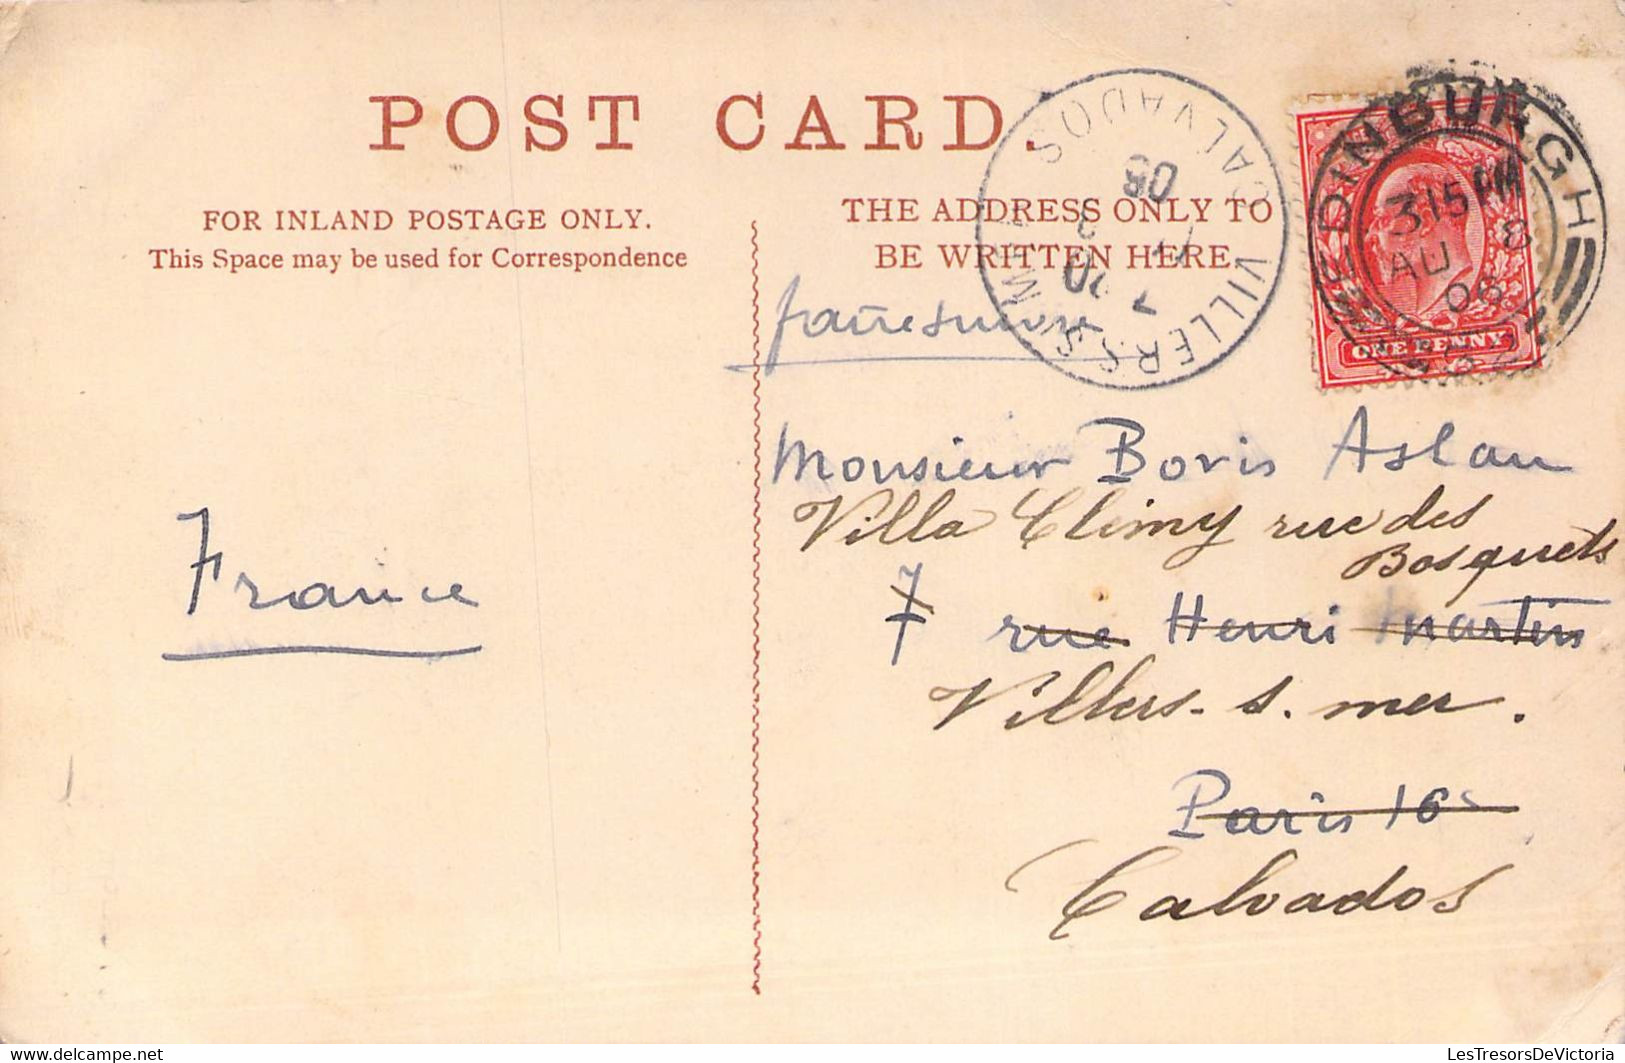 POST CARD.
FOR INLAND POSTAGE ONLY.
This Space may be used for Correspondence
THE ADDRESS ONLY TO
BE WRITTEN HERE.
VILLERS S. MER
CALVADOS
08
EDINBURGH
315 PM
AU 8
08
ONE PENNY
faire suivre
Monsieur Boris Aslan
Villa Climy rue des
Bosquets
7 rue Henri Martin
Villers-s. mer.
Paris 16e
Calvados
France
LesTresorsDeVictoria